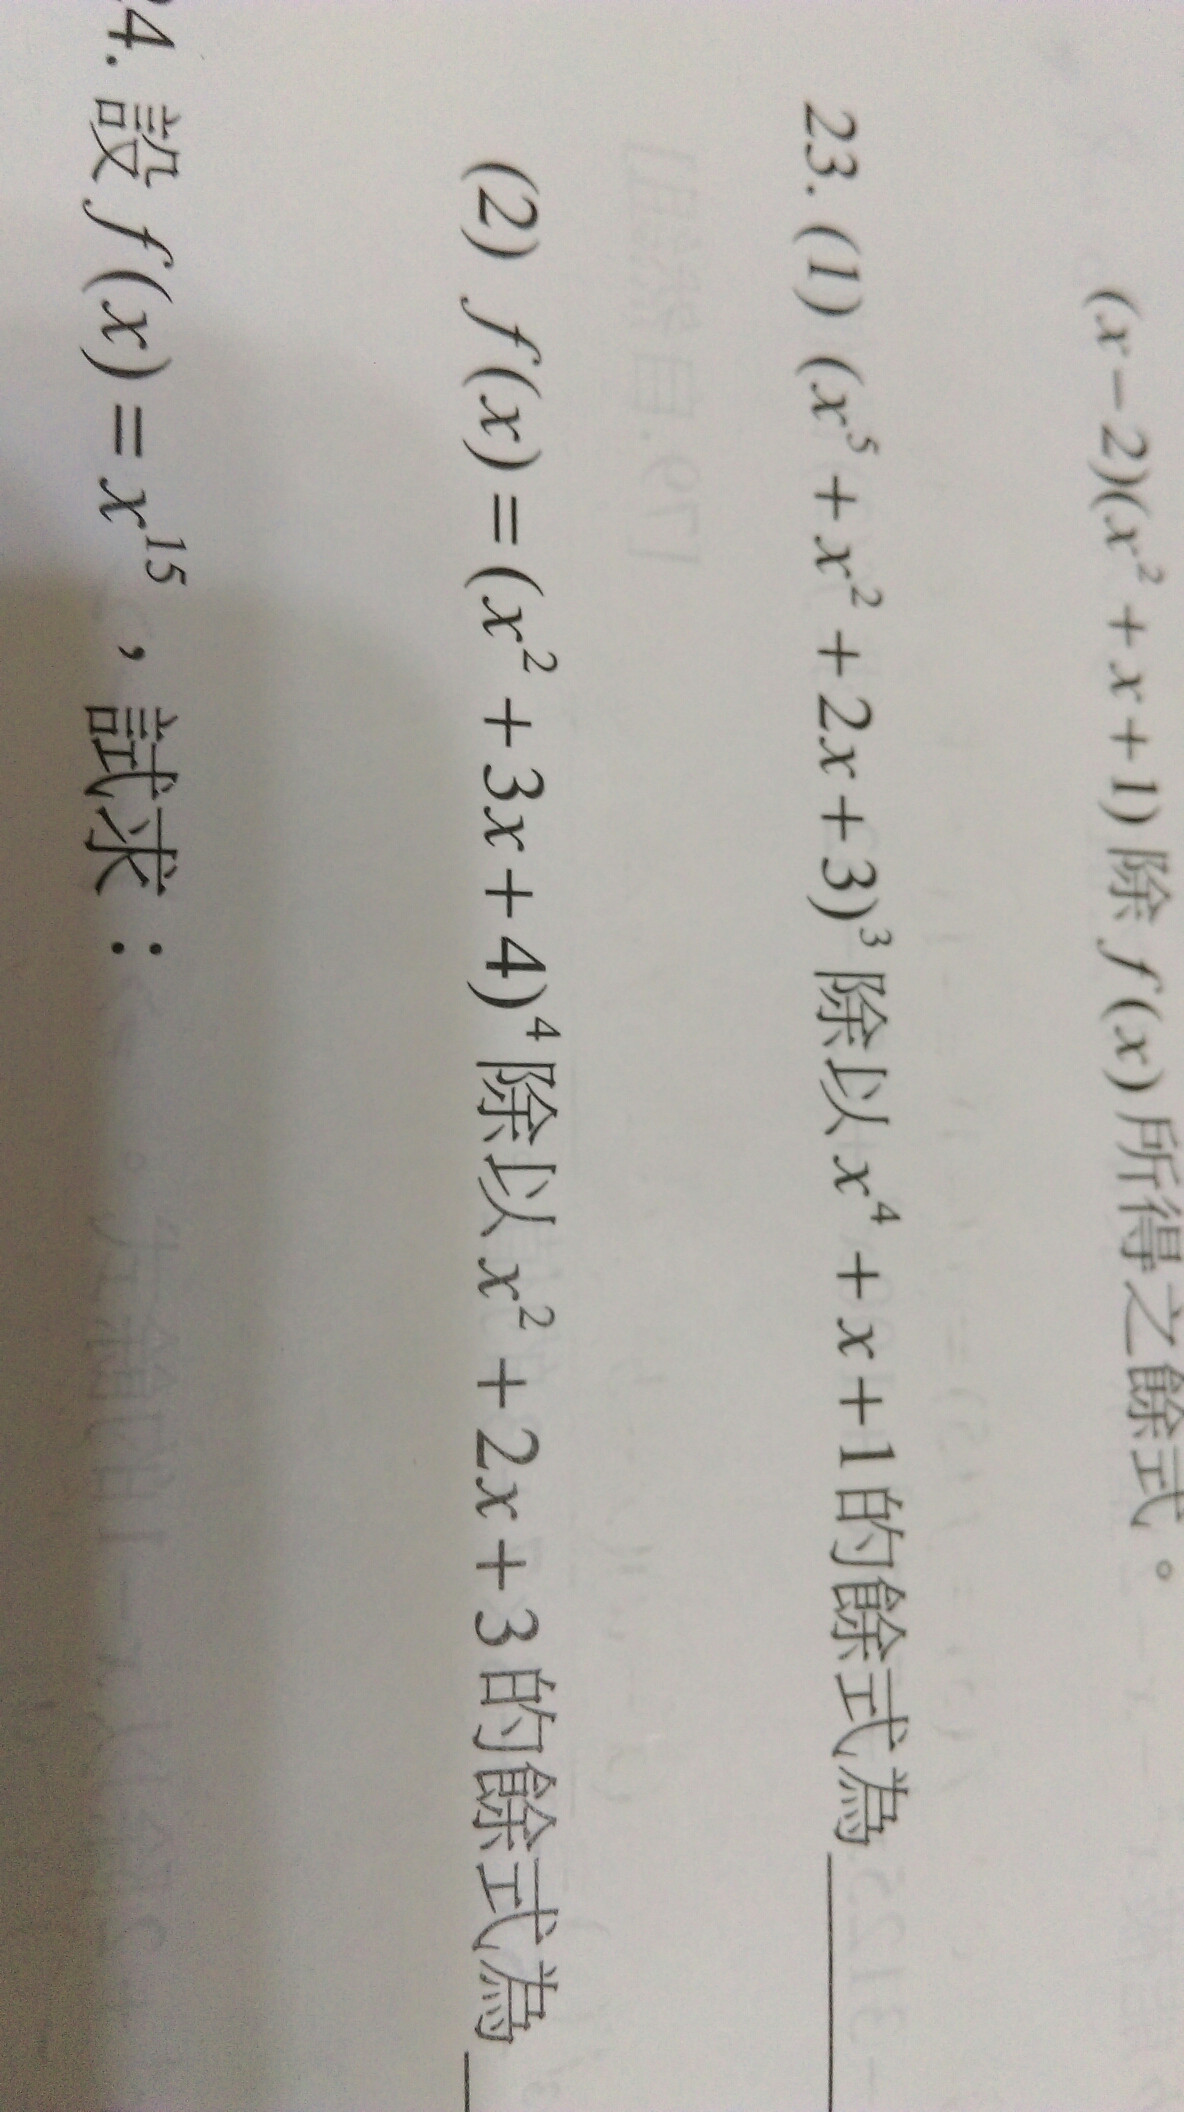 (x-2)(x²+x+1)除f(x)所得之餘式。
23. (1) (x⁵+x²+2x+3)³除以x⁴+x+1的餘式為
(2) f(x)=(x²+3x+4)⁴除以x²+2x+3的餘式為
4. 設f(x)=x¹⁵，試求：